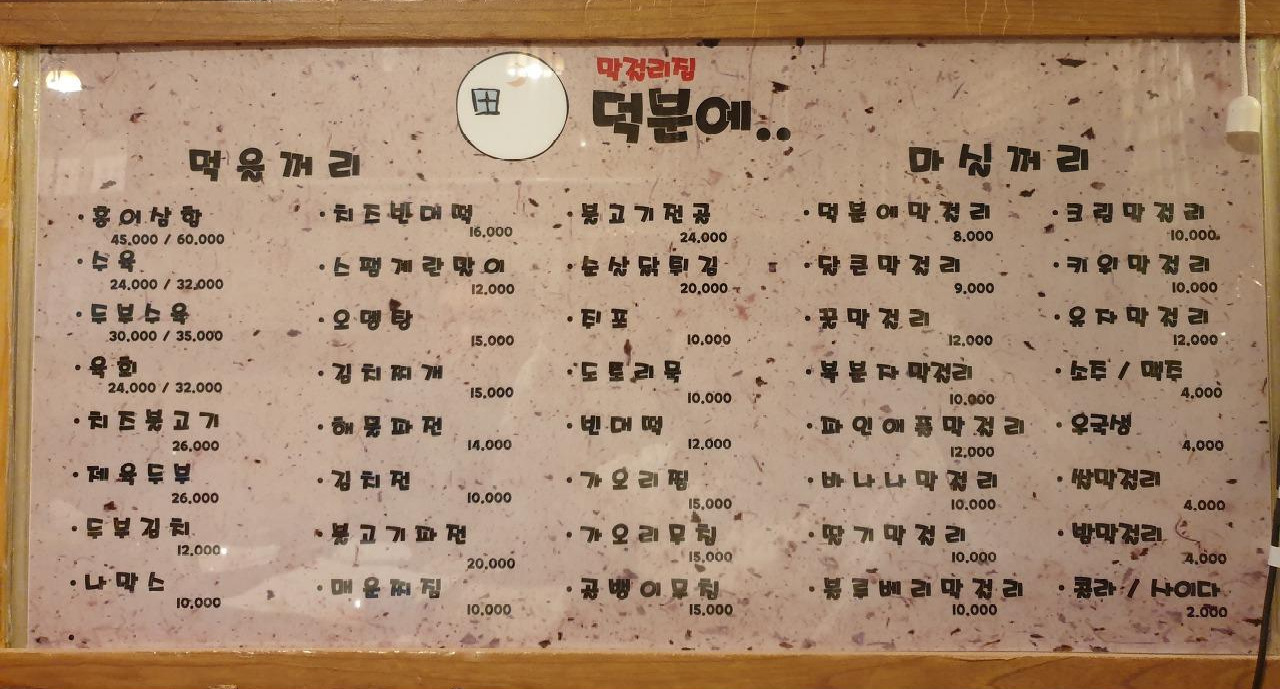 막걸리집
덕분에..
田
먹을꺼리
· 홍어삼합
45,000 / 60,000
· 수육
24,000 / 32,000
· 두부수육
30,000 / 35,000
· 육회
24,000 / 32,000
· 치즈불고기
26,000
· 제육두부
26,000
· 두부김치
12,000
· 나막스
10,000
· 치즈빈대떡
16,000
· 스팸계란말이
12,000
· 오뎅탕
15,000
· 김치찌개
15,000
· 해물파전
14,000
· 김치전
10,000
· 불고기파전
20,000
· 매운찌짐
10,000
· 불고기전골
24,000
· 순살닭튀김
20,000
· 쥐포
10,000
· 도토리묵
10,000
· 빈대떡
12,000
· 가오리찜
15,000
· 가오리무침
15,000
· 골뱅이무침
15,000
마실꺼리
· 덕분에막걸리
8,000
· 달큰막걸리
9,000
· 꿀막걸리
12,000
· 복분자막걸리
10,000
· 파인애플막걸리
12,000
· 바나나막걸리
10,000
· 딸기막걸리
10,000
· 블루베리막걸리
10,000
· 크림막걸리
10,000
· 키위막걸리
10,000
· 유자막걸리
12,000
· 소주 / 맥주
4,000
· 우국생
4,000
· 쌀막걸리
4,000
· 밤막걸리
4,000
· 콜라 / 사이다
2,000